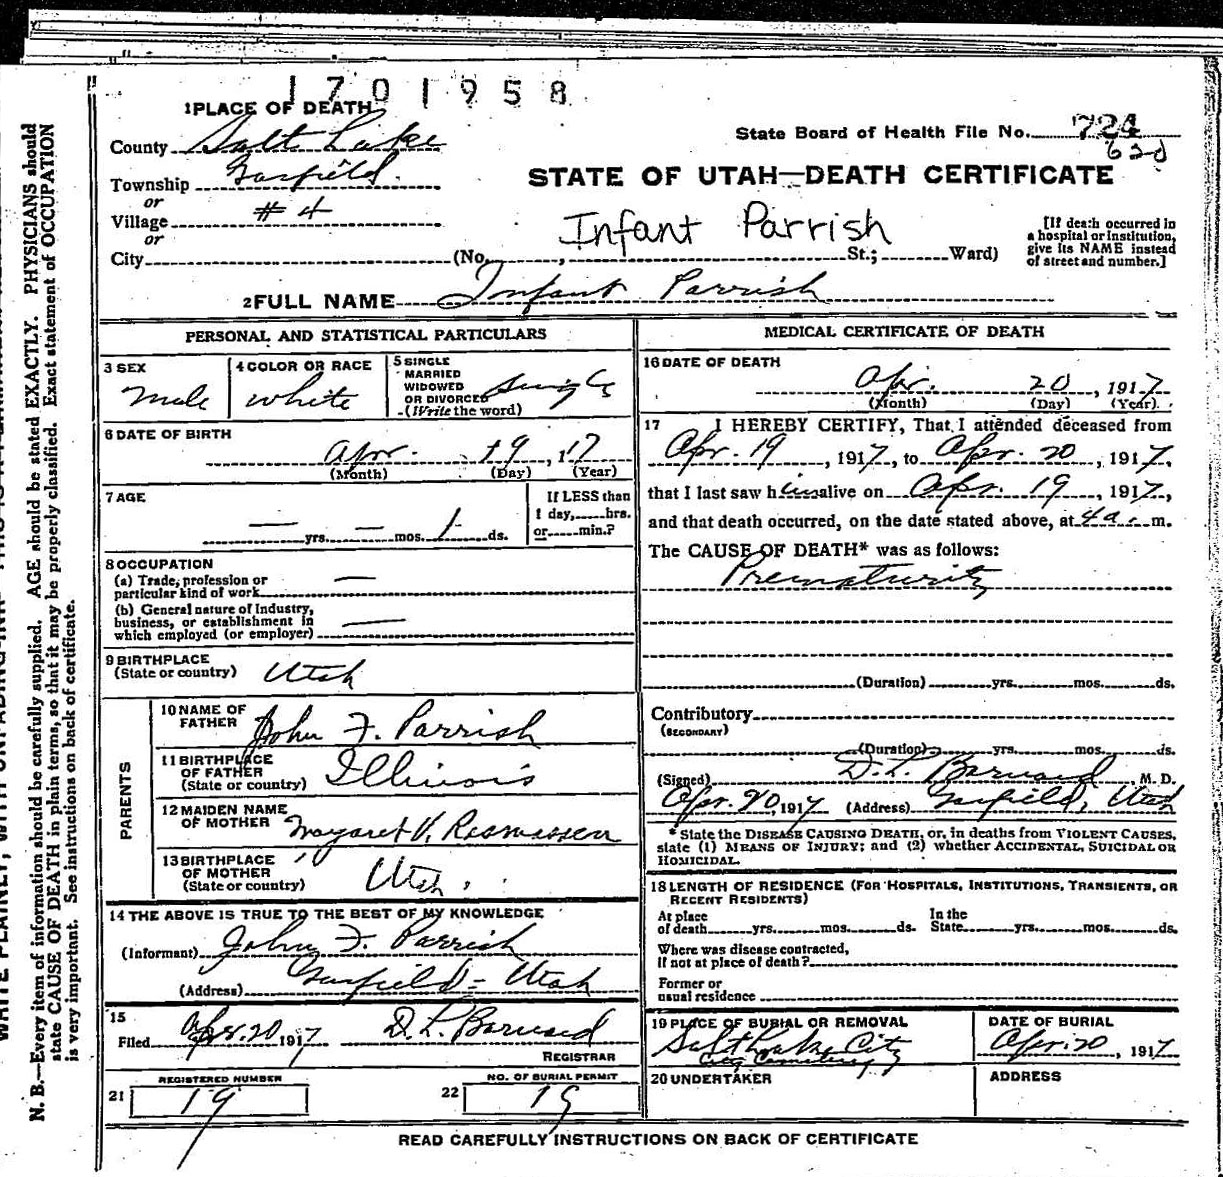 1701958
1 PLACE OF DEATH
County Salt Lake
State Board of Health File No. 724
Township Garfield.
STATE OF UTAH—DEATH CERTIFICATE
or
Village #4
or
Infant Parrish
City (No. , St.; Ward)
[If death occurred in
a hospital or institution,
give its NAME instead
of street and number.]
2 FULL NAME Infant Parrish
PERSONAL AND STATISTICAL PARTICULARS
3 SEX
Male
4 COLOR OR RACE
White
5 SINGLE
MARRIED
WIDOWED
OR DIVORCED
(Write the word)
Single
6 DATE OF BIRTH
Apr. 19, 1917
(Month) (Day) (Year)
7 AGE
— yrs. — mos. 1 ds.
If LESS than
1 day, hrs.
or min.?
8 OCCUPATION
(a) Trade, profession or
particular kind of work —
(b) General nature of Industry,
business, or establishment in
which employed (or employer) —
9 BIRTHPLACE
(State or country) Utah
PARENTS
10 NAME OF
FATHER John F. Parrish
11 BIRTHPLACE
OF FATHER
(State or country) Illinois
12 MAIDEN NAME
OF MOTHER Margaret V. Rasmussen
13 BIRTHPLACE
OF MOTHER
(State or country) Utah.
14 THE ABOVE IS TRUE TO THE BEST OF MY KNOWLEDGE
(Informant) John F. Parrish
(Address) Garfield - Utah
15
Filed Apr. 20 1917 D. L. Barnard
REGISTRAR
REGISTERED NUMBER
21 19
NO. OF BURIAL PERMIT
22 19
MEDICAL CERTIFICATE OF DEATH
16 DATE OF DEATH
Apr. 20, 1917
(Month) (Day) (Year)
17 I HEREBY CERTIFY, That I attended deceased from
Apr. 19, 1917, to Apr. 20, 1917,
that I last saw him alive on Apr. 19, 1917,
and that death occurred, on the date stated above, at 4 a. m.
The CAUSE OF DEATH* was as follows:
Prematurity
(Duration) yrs. mos. ds.
Contributory
(SECONDARY)
(Duration) yrs. mos. ds.
(Signed) D. L. Barnard, M. D.
Apr. 20, 1917 (Address) Garfield, Utah
*State the DISEASE CAUSING DEATH, or, in deaths from VIOLENT CAUSES,
state (1) MEANS OF INJURY; and (2) whether ACCIDENTAL, SUICIDAL OR
HOMICIDAL.
18 LENGTH OF RESIDENCE (FOR HOSPITALS, INSTITUTIONS, TRANSIENTS, OR
RECENT RESIDENTS)
At place
of death yrs. mos. ds.
In the
State yrs. mos. ds.
Where was disease contracted,
If not at place of death?
Former or
usual residence
19 PLACE OF BURIAL OR REMOVAL
Salt Lake City
City Cemetery
DATE OF BURIAL
Apr. 20, 1917
20 UNDERTAKER
ADDRESS
READ CAREFULLY INSTRUCTIONS ON BACK OF CERTIFICATE
N. B.—Every item of information should be carefully supplied. AGE should be stated EXACTLY. PHYSICIANS should
state CAUSE OF DEATH in plain terms, so that it may be properly classified. Exact statement of OCCUPATION
is very important. See instructions on back of certificate.